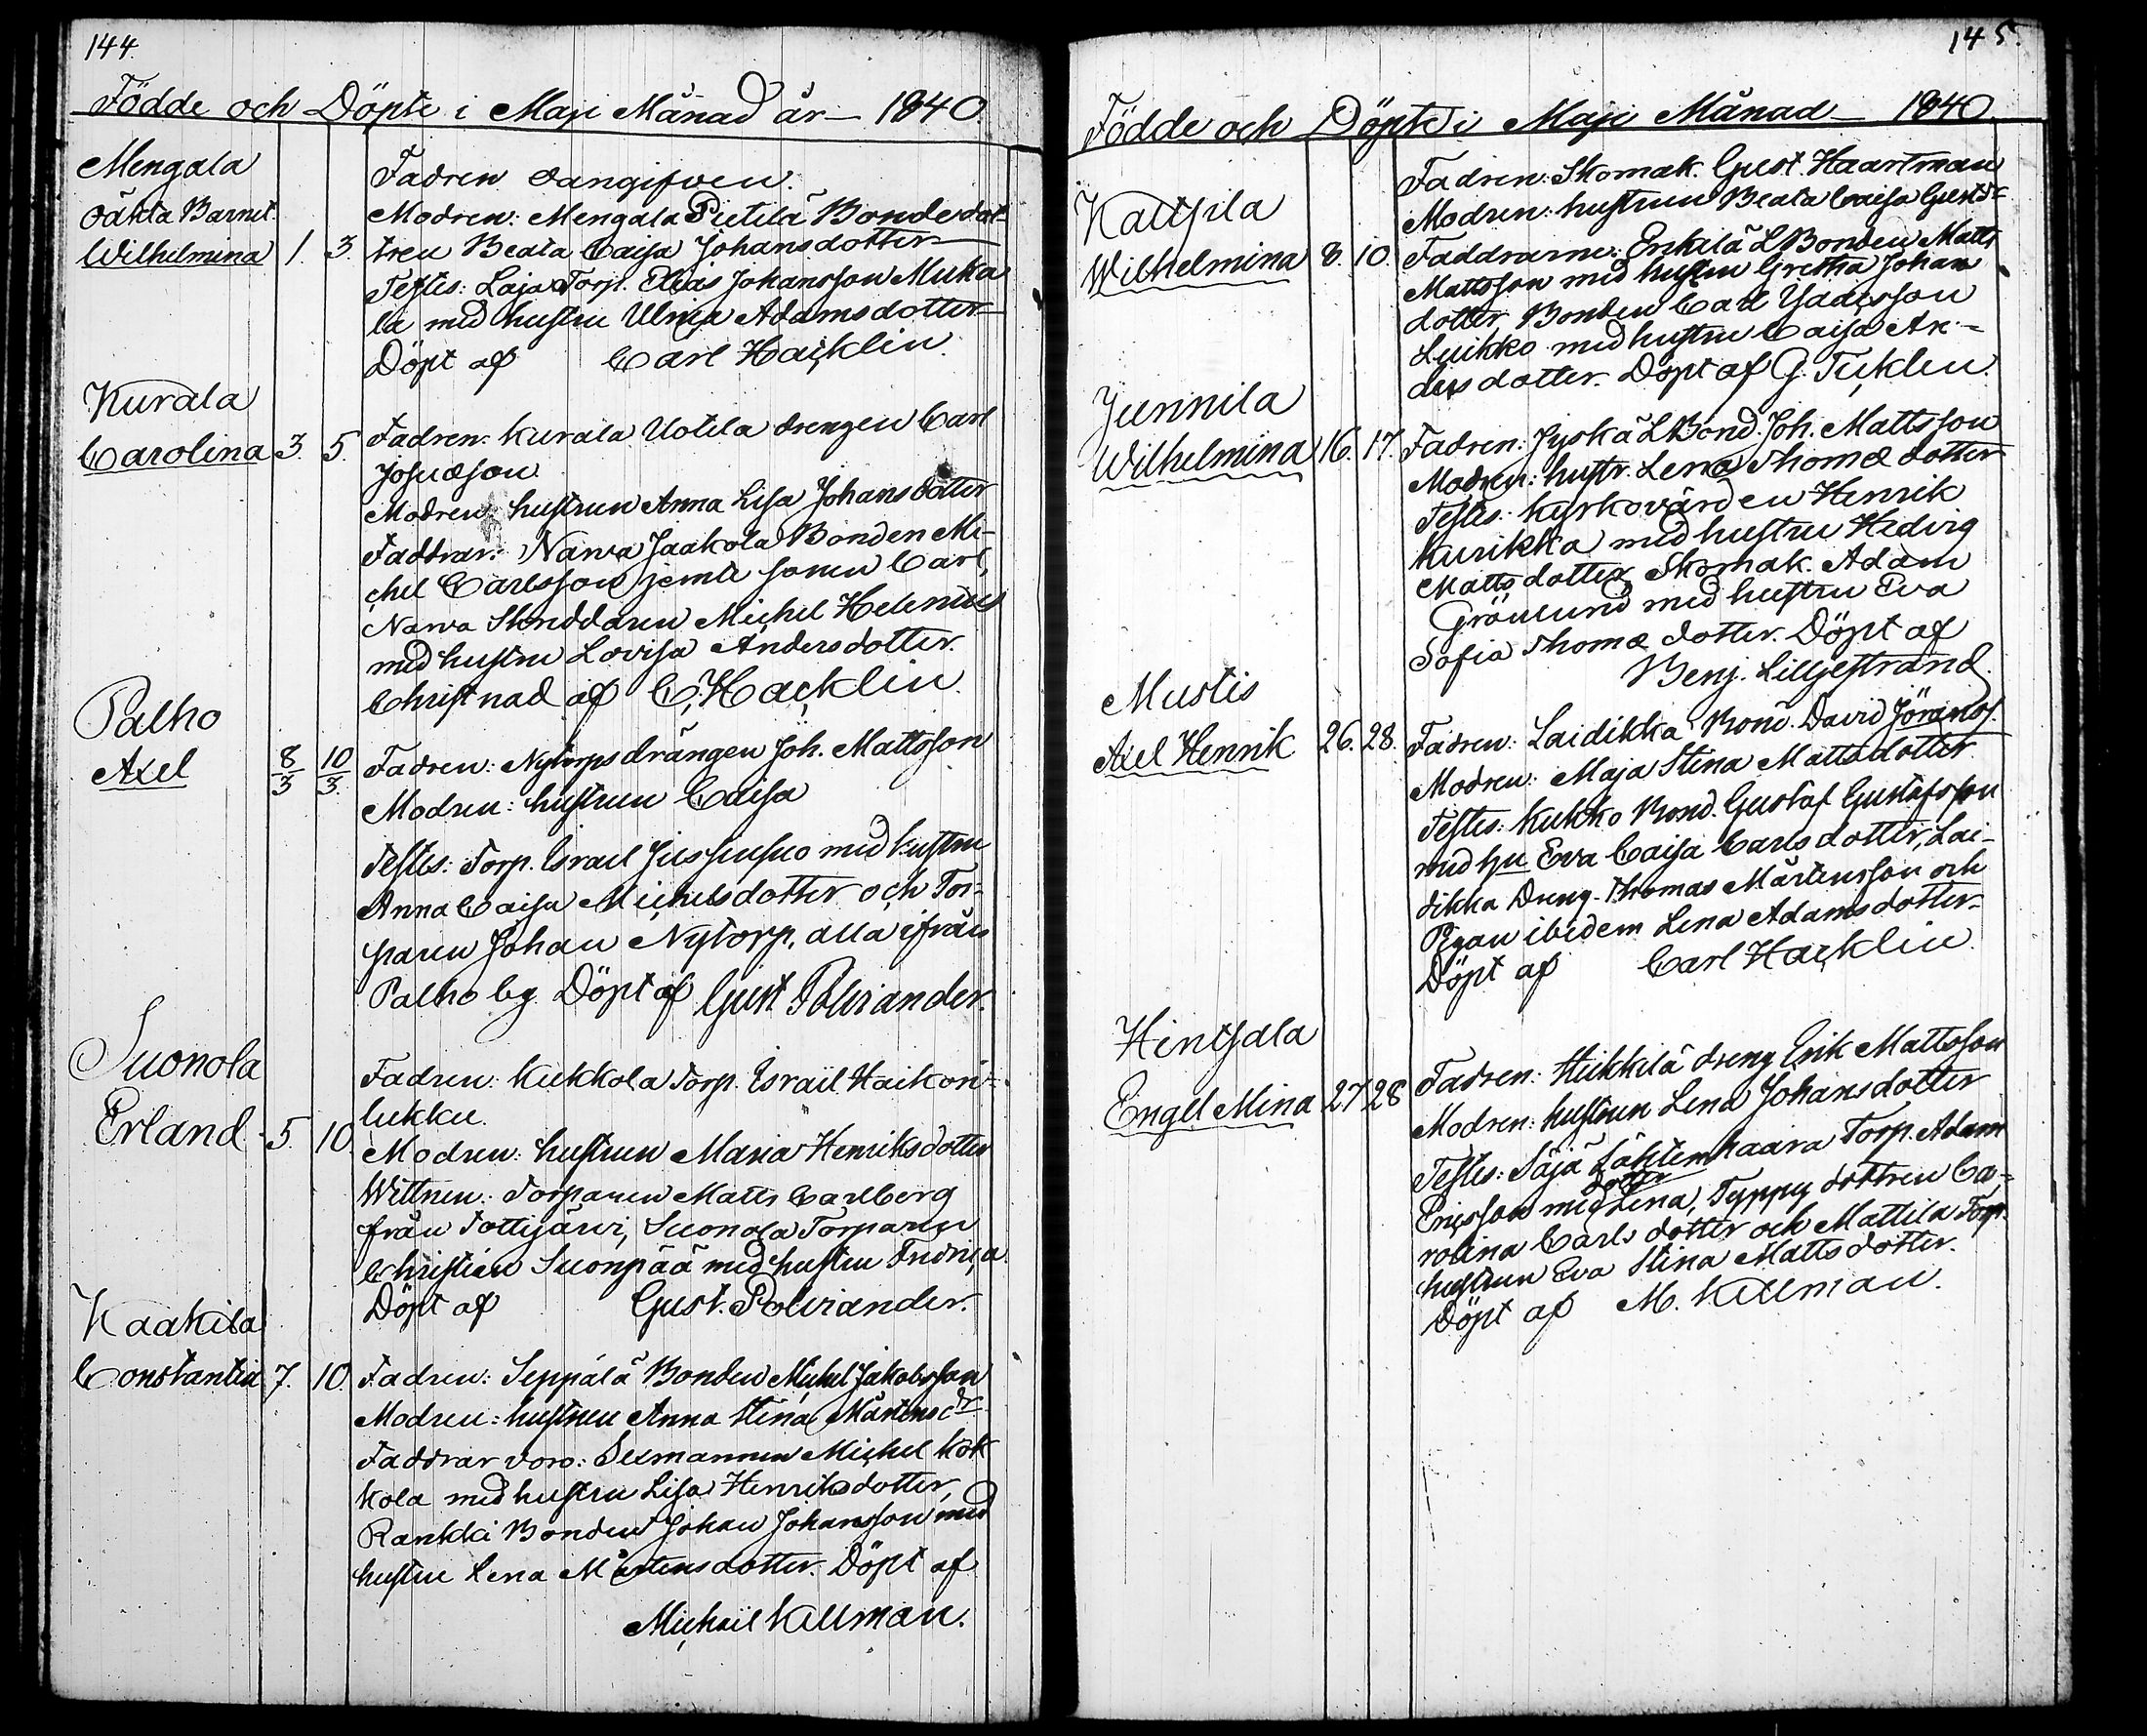 144.
Födde och Döpte i Maji Månad år 1840
Mengala
oäkta Barnet
Wilhelmina 1. 3.
Fadren oangifven.
Modren: Mengala Pietilä Bondedot-
tren Beata Caisa Johansdotter
Testes: Laja Torp. Elias Johansson Muka
la med hustru Ulrica Adamsdotter
Döpt af Carl Hacklin.
Kurala
Carolina 3. 5.
Fadren: Kurala Uotila drengen Carl
Josuæson
Modren: hustrun Anna Lisa Johansdotter
Faddrar: Narva Jaakola Bonden Mi-
chel Carlsson jemte sonen Carl,
Narva Skreddaren Michel Helenius
med hustru Lovisa Andersdotter.
Christnad af C. Hacklin.
Palho
Axel 8/3 10/3.
Fadren: Nytorps drängen Joh. Mattsson
Modren: hustrun Caisa
Testes: Torp. Israel Juspusuo med hustru
Anna Caisa Michelsdotter och Tor-
paren Johan Nytorp, alla ifrån
Palho by. Döpt af Gust Polviander.
Suonola
Erland 5. 10.
Fadren: Kukkola Torp. Israël Haikon-
lukku.
Modren: hustrun Maria Henriksdotter
Wittnen: Torparen Matts Carlberg
från Tottijärvi, Suonola Torparen
Christian Suonpää med hustru Fredrica.
Döpt af Gust. Polviander.
Kaakila
Constantin 7. 10.
Fadren: Seppälä Bonden Michel Jakobsson
Modren: hustrun Anna Stina Mårtens dr
Faddrar voro: Sexmannen Michel Kok
kola med hustru Lisa Henriksdotter,
Rankki Bonden Johan Johansson med
hustru Lena Mårtensdotter. Döpt af
Michaël Killman.
145.
Födde och Döpte i Maji Månad 1840.
Kaltsila
Wilhelmina 8. 10.
Fadren: Skomak. Gust. Haartman
Modren: hustrun Beata Caisa Gustdr
Faddrarne: Erkilä L Bonden Matts
Mattsson med hustru Gretha Johans
dotter, Bonden Carl Isacsson
Luikko med hustru Caisa An-
dersdotter. Döpt af G. Ticklén
Junnila
Wilhelmina 16. 17.
Fadren: Jyskä L Bond. Joh. Mattsson
Modren: hustr. Lena Thomæ dotter
Testes: Kyrkovärden Henrik
Kurikka med hustru Hedvig
Matts dotter, Skomak. Adam
Grönlund med hustru Eva
Sofia Thomæ dotter. Döpt af
Benj. Liljestrand.
Mustis
Axel Henrik 26. 28.
Fadren: Laidikka Bond. David Göranss.
Modren: Maja Stina Mattsdotter
Testes: Kukko Bond. Gustaf Gustafsson
med hu Eva Caisa Carlsdotter, Lai-
dikka Dreng. Thomas Mårtensson och
Pigan ibidem Lena Adamsdotter.
Döpt af Carl Hacklin
Hintsala
Engel Mina 27 28
Fadren: Heikkilä dreng Erik Mattsson
Modren: hustrun Lena Johansdotter
Testes: Säjä Lähtemhaara Torp. Adam
Ericsson med dotter Lena, Typpy dottren Ca-
rolina Carls dotter och Mattila Torp.
hustrun Eva Stina Mattsdotter.
Döpt af M. Killman.